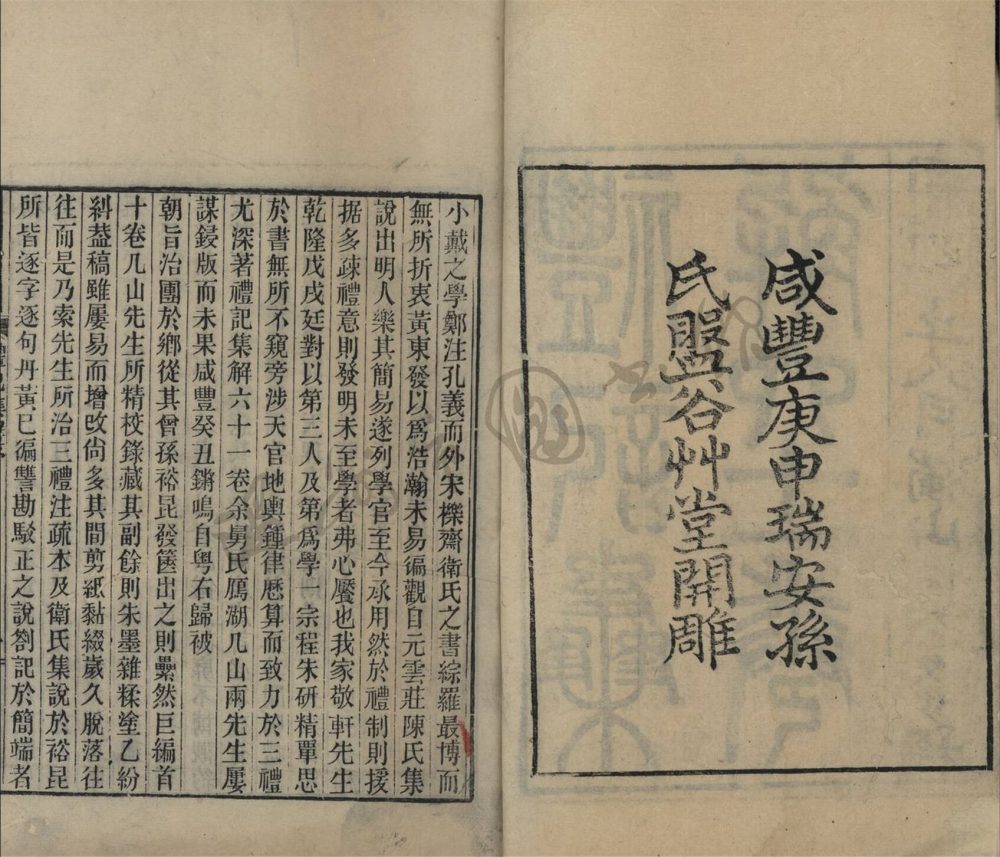 咸豐庚申瑞安孫
氏盤谷艸堂開雕
小戴之學鄭注孔義而外宋櫟齋衛氏之書綜羅最博而
無所折衷黃東發以爲浩瀚未易徧觀自元雲莊陳氏集
說出明人樂其簡易遂列學官至今承用然於禮制則援
据多疎禮意則發明未至學者弗心饜也我家敬軒先生
乾隆戊戌廷對以第三人及第爲學一宗程朱研精單思
於書無所不窺旁涉天官地輿鍾律厯算而致力於三禮
尤深著禮記集解六十一卷余舅氏鴈湖几山兩先生屢
謀鋟版而未果咸豐癸丑鏘鳴自粵右歸被
朝旨治團於鄉從其曾孫裕昆發篋出之則纍然巨編首
十卷几山先生所精校錄藏其副餘則朱墨雜糅塗乙紛
糾葢稿雖屢易而增改尙多其間剪紙黏綴歲久脫落往
往而是乃索先生所治三禮注疏本及衛氏集說於裕昆
所皆逐字逐句丹黃已徧讐勘駁正之說劄記於簡端者